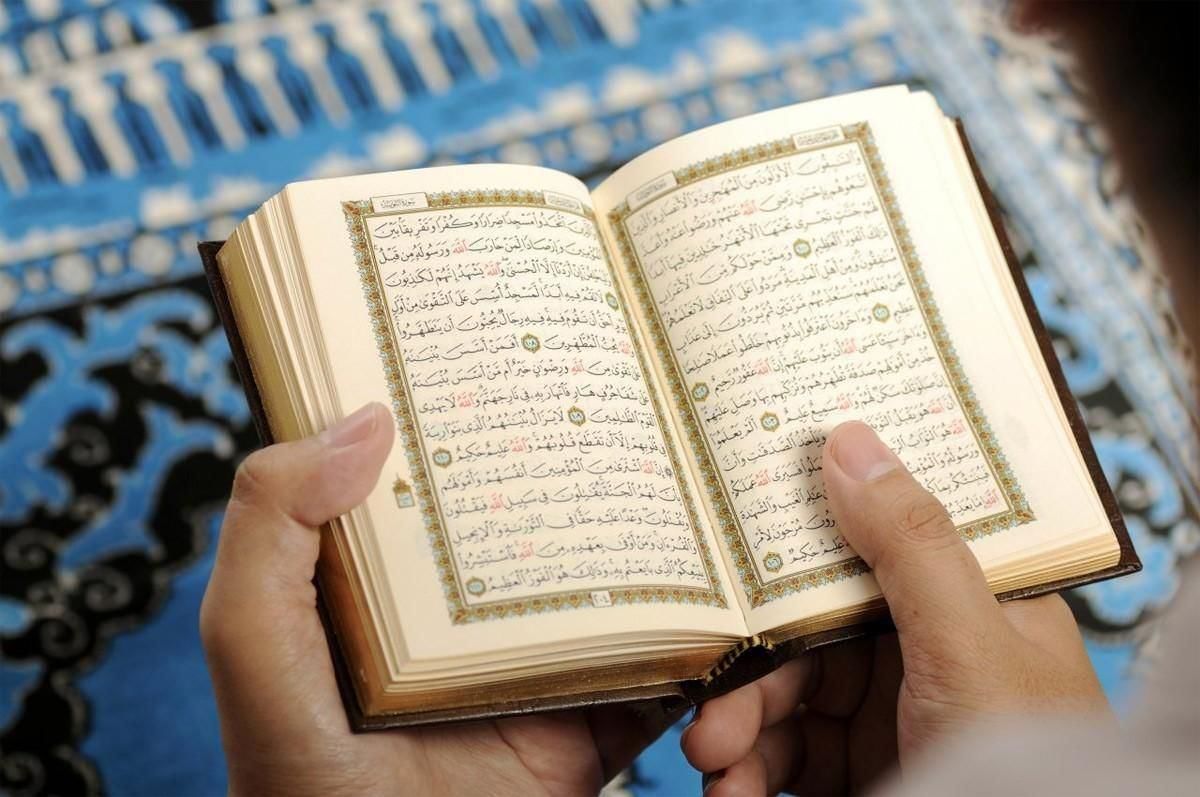 سورة التوبة
وَٱلسَّٰبِقُونَ ٱلْأَوَّلُونَ مِنَ ٱلْمُهَٰجِرِينَ وَٱلْأَنصَارِ وَٱلَّذِينَ
ٱتَّبَعُوهُم بِإِحْسَٰنٍ رَّضِىَ ٱللَّهُ عَنْهُمْ وَرَضُوا۟ عَنْهُ وَأَعَدَّ
لَهُمْ جَنَّٰتٍ تَجْرِى تَحْتَهَا ٱلْأَنْهَٰرُ خَٰلِدِينَ فِيهَآ أَبَدًا
ذَٰلِكَ ٱلْفَوْزُ ٱلْعَظِيمُ ١٠٠ وَمِمَّنْ حَوْلَكُم مِّنَ ٱلْأَعْرَابِ
مُنَٰفِقُونَ وَمِنْ أَهْلِ ٱلْمَدِينَةِ مَرَدُوا۟ عَلَى ٱلنِّفَاقِ لَا تَعْلَمُهُمْ
نَحْنُ نَعْلَمُهُمْ سَنُعَذِّبُهُم مَّرَّتَيْنِ ثُمَّ يُرَدُّونَ إِلَىٰ عَذَابٍ
عَظِيمٍ ١٠١ وَءَاخَرُونَ ٱعْتَرَفُوا۟ بِذُنُوبِهِمْ خَلَطُوا۟ عَمَلًا صَٰلِحًا
وَءَاخَرَ سَيِّئًا عَسَى ٱللَّهُ أَن يَتُوبَ عَلَيْهِمْ إِنَّ ٱللَّهَ غَفُورٌ رَّحِيمٌ ١٠٢
خُذْ مِنْ أَمْوَٰلِهِمْ صَدَقَةً تُطَهِّرُهُمْ وَتُزَكِّيهِم بِهَا وَصَلِّ عَلَيْهِمْ
إِنَّ صَلَوٰتَكَ سَكَنٌ لَّهُمْ وَٱللَّهُ سَمِيعٌ عَلِيمٌ ١٠٣ أَلَمْ يَعْلَمُوٓا۟
أَنَّ ٱللَّهَ هُوَ يَقْبَلُ وَيَأْخُذُ ٱلصَّدَقَٰتِ وَأَنَّ
ٱللَّهَ هُوَ ٱلتَّوَّابُ فَسَيَرَى ٱللَّهُ عَمَلَكُمْ
وَرَسُولُهُۥ وَٱلْمُؤْمِنُونَ عَٰلِمِ ٱلْغَيْبِ وَٱلشَّهَٰدَةِ
فَيُنَبِّئُكُم بِمَا مُرْجَوْنَ لِأَمْرِ
ٱللَّهِ إِمَّا عَلِيمٌ حَكِيمٌ ١٠٦
سورة التوبة
ٱتَّخَذُوا۟ مَسْجِدًا ضِرَارًا وَكُفْرًا وَتَفْرِيقًۢا بَيْنَ
ٱلْمُؤْمِنِينَ وَإِرْصَادًا لِّمَنْ حَارَبَ ٱللَّهَ وَرَسُولَهُۥ مِن قَبْلُ
وَلَيَحْلِفُنَّ إِنْ أَرَدْنَآ إِلَّا ٱلْحُسْنَىٰ وَٱللَّهُ يَشْهَدُ إِنَّهُمْ لَكَٰذِبُونَ
١٠٧ لَا تَقُمْ فِيهِ أَبَدًا لَّمَسْجِدٌ أُسِّسَ عَلَى ٱلتَّقْوَىٰ مِنْ أَوَّلِ
يَوْمٍ أَحَقُّ أَن تَقُومَ فِيهِ فِيهِ رِجَالٌ يُحِبُّونَ أَن يَتَطَهَّرُوا۟
وَٱللَّهُ يُحِبُّ ٱلْمُطَّهِّرِينَ ١٠٨ أَفَمَنْ أَسَّسَ بُنْيَٰنَهُۥ
عَلَىٰ تَقْوَىٰ مِنَ ٱللَّهِ وَرِضْوَٰنٍ خَيْرٌ أَم مَّنْ أَسَّسَ بُنْيَٰنَهُۥ
عَلَىٰ شَفَا جُرُفٍ هَارٍ فَٱنْهَارَ بِهِۦ فِى نَارِ جَهَنَّمَ وَٱللَّهُ لَا يَهْدِى
ٱلْقَوْمَ ٱلظَّٰلِمِينَ ١٠٩ لَا يَزَالُ بُنْيَٰنُهُمُ ٱلَّذِى بَنَوْا۟ رِيبَةً
فِى قُلُوبِهِمْ إِلَّآ أَن تَقَطَّعَ قُلُوبُهُمْ وَٱللَّهُ عَلِيمٌ حَكِيمٌ ١١٠
إِنَّ ٱللَّهَ ٱشْتَرَىٰ مِنَ ٱلْمُؤْمِنِينَ أَنفُسَهُمْ وَأَمْوَٰلَهُم
بِأَنَّ لَهُمُ ٱلْجَنَّةَ يُقَٰتِلُونَ فِى سَبِيلِ ٱللَّهِ فَيَقْتُلُونَ
وَيُقْتَلُونَ وَعْدًا عَلَيْهِ حَقًّا فِى ٱلتَّوْرَىٰةِ وَٱلْإِنجِيلِ
وَٱلْقُرْءَانِ وَمَنْ أَوْفَىٰ بِعَهْدِهِۦ مِنَ ٱللَّهِ فَٱسْتَبْشِرُوا۟
بِبَيْعِكُمُ ٱلَّذِى بَايَعْتُم بِهِۦ وَذَٰلِكَ هُوَ ٱلْفَوْزُ ٱلْعَظِيمُ ١١١
٢٠٤